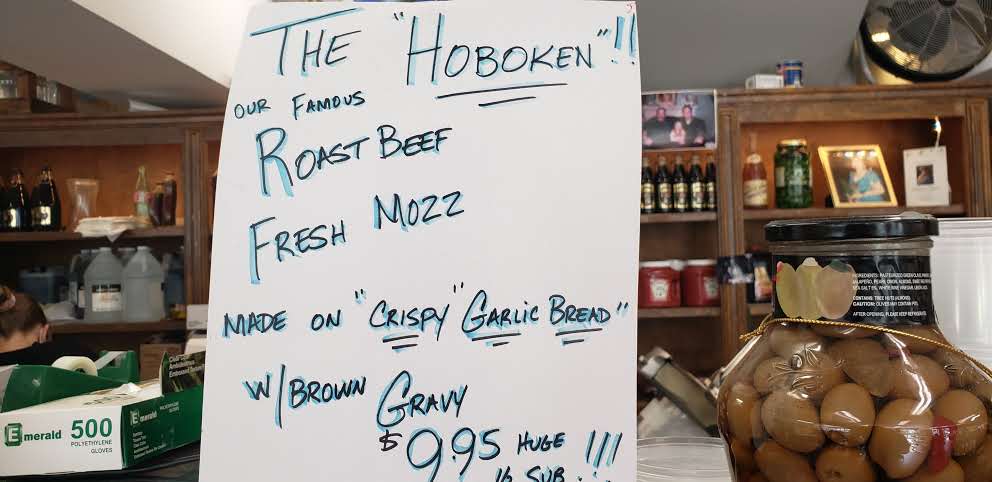 THE "HOBOKEN"!!
OUR FAMOUS
ROAST BEEF
FRESH MOZZ
MADE ON "CRISPY" GARLIC BREAD"
W/BROWN GRAVY
$9.95 HUGE !!!
SUB
Emerald 500
POLYETHYLENE
GLOVES
Emerald
CONTAINS: TREE NUTS (ALMOND)
AFTER OPENING, PLEASE KEEP REFRIGERATED